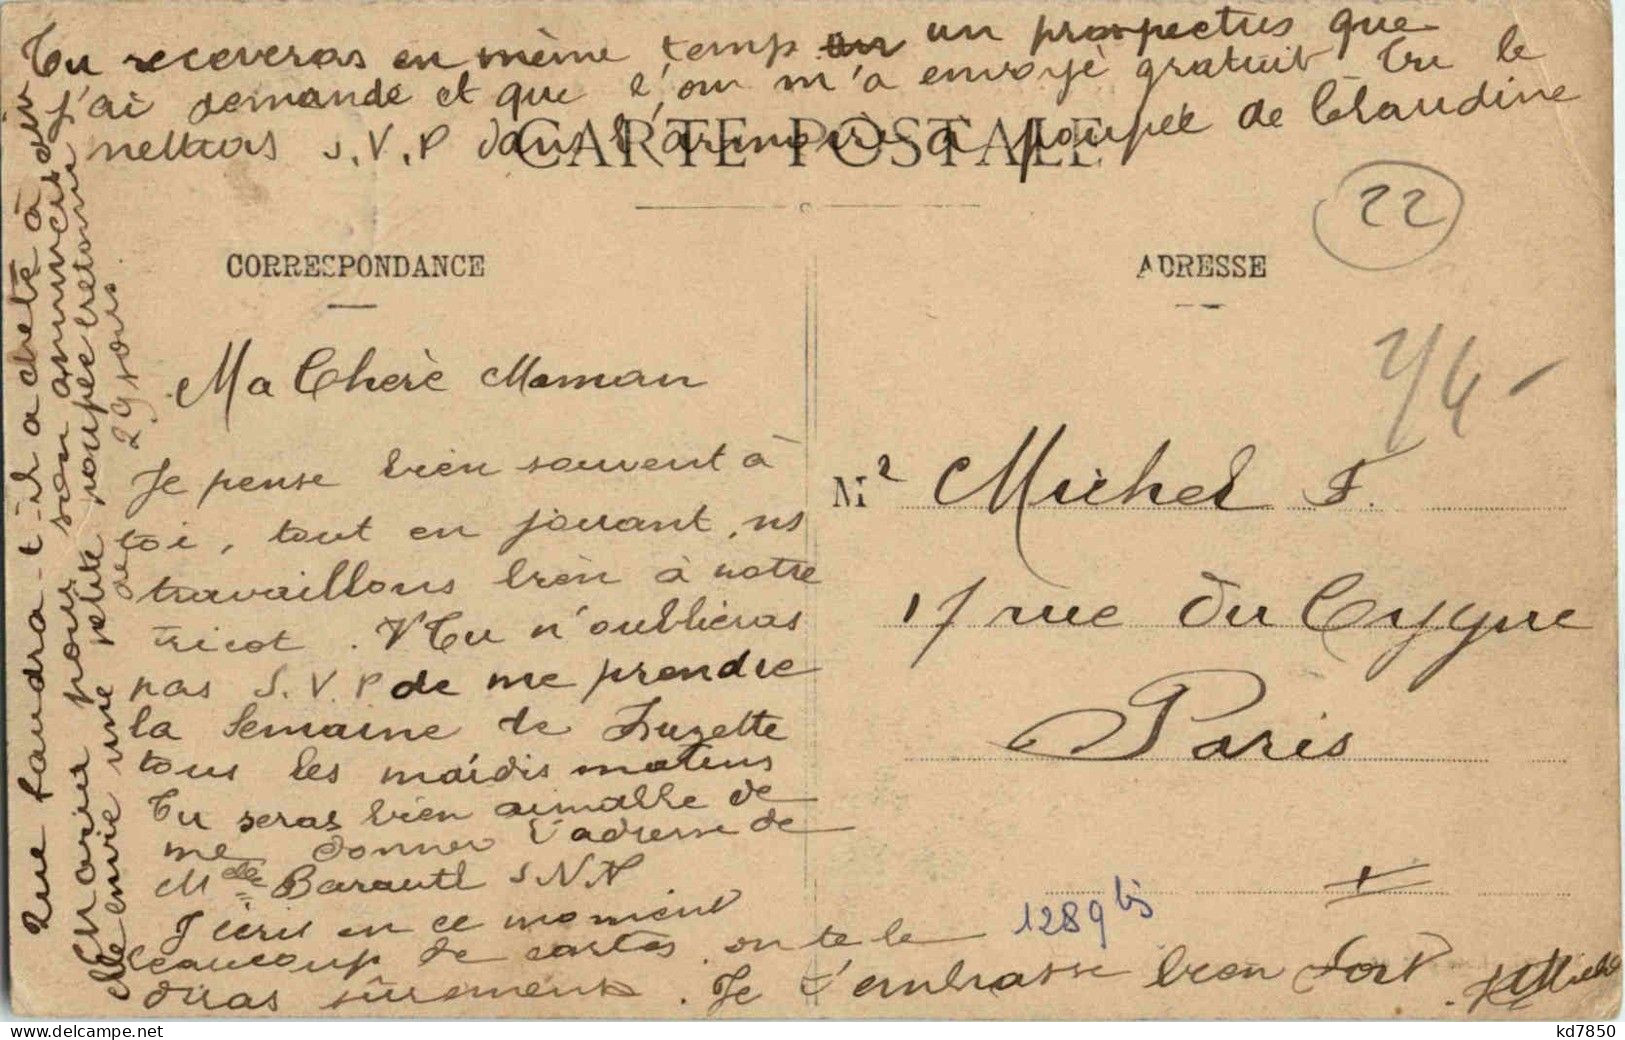 Tu receveras en même temp un prospectus que
j'ai demandé et que l'on m'a envoyé gratuit Tu le
mettras S.V.P dans l'armoire à poupée de Claudine
CARTE POSTALE
22
CORRESPONDANCE
Ma Chère Maman
Je pense bien souvent à
toi, tout en jouant, ns
travaillons bien à notre
tricot. Tu n'oublieras
pas S.V.P de me prendre
la Semaine de Suzette
tous les mardis matins
Tu seras bien aimable de
me donner l'adresse de
Mlle
J'écris en ce moment
beaucoup de cartes, on te le
diras sûrement. Je t'embrasse bien fort.
ADRESSE
4
Mr Michel F.
17 rue du Cygne
Paris
1289 bis
Que faudra-t-il acheté à
Marie pour son
Me envie une petite poupée bretonne
de 29 sous
kd7850